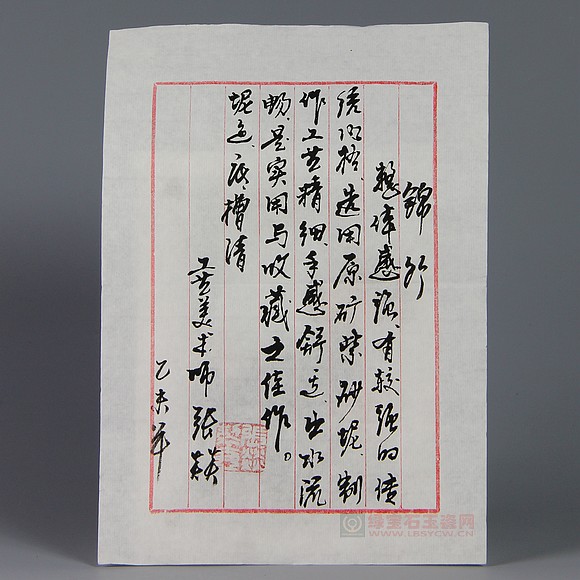 锦竹
整体感强、有较强的传
统风格、选用原矿紫砂坭、制
作工艺精细、手感舒适、出水流
畅、是实用与收藏之佳作。
坭色底槽清
工艺美术师 张燚
乙未年
绿宝石玉缘网
WWW.LBSYCW.CN